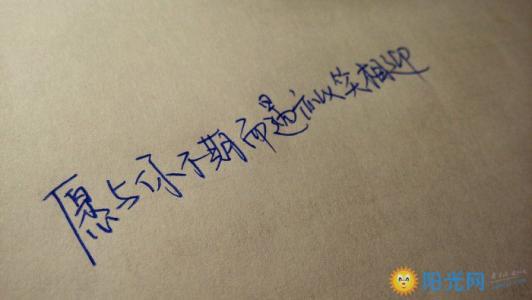 愿与你不期而遇亦以笑相迎
阳光网